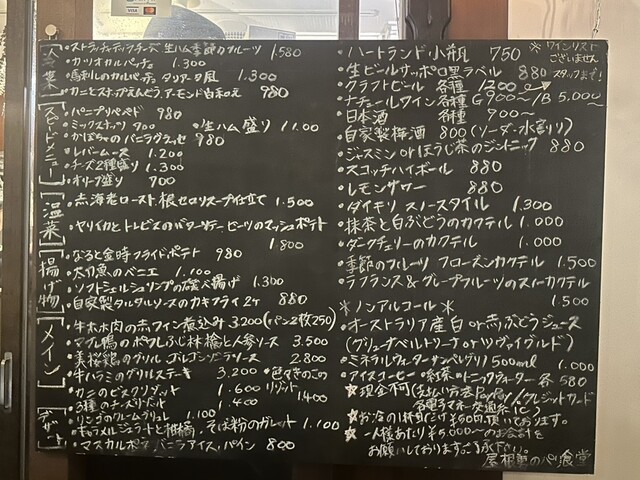 VISA
冷菜
・ストラッチャテッラチーズ 生ハム季節のフルーツ 1.580
・カツオカルパッチョ 1.300
・馬刺しのカルパッチョ タリアータ風 1.300
・カニとスナップえんどう、アーモンド白和え 980
スピードメニュー
・パニプリペペド 980
・ミックスナッツ 900 ・生ハム盛り 1.100
・かぼちゃのバニラグラッセ 980
・レバームース 1.200
・チーズ2種盛り 1.300
・オリーブ盛り 700
温菜
・赤海老ロースト、根セロリスープ仕立て 1.500
・ヤリイカとトレビスのバターソテー ビーツのマッシュポテト
1.800
揚げ物
・なると金時フライドポテト 980
・太刀魚のベニエ 1.100
・ソフトシェルシュリンプの磯べ揚げ 1.300
・自家製タルタルソースのカキフライ2ケ 880
メイン
・牛ホホ肉の赤ワイン煮込み 3.200(パン2枚250)
・マグレ鴨のポワレ ぶじ林檎と人参ソース 3.500
・美桜鶏のグリル ゴルゴンゾーラソース 2.800
・牛ハラミのグリルステーキ 3.200 ・色々きのこの
リゾット 1.400
・カニのビスクリゾット 1.600
・3種のチーズリゾット 1.400
デザート
・リンゴのクレームブリュレ 1.100
・キャラメルジェラートと柑橘、そば粉のガレット 1.100
・マスカルポーネバニラアイス、パイン 800
・ハートランド小瓶 750
※ワインリスト
ございません
スタッフまで!
・生ビールサッポロ黒ラベル 880
・クラフトビール 各種 1200
・ナチュールワイン各種 G900〜/B 5,000〜
・日本酒 各種 900〜
・自家製梅酒 800(ソーダ・水割り)
・ジャスミン orほうじ茶のジントニック 880
・スコッチハイボール 880
・レモンサワー 880
・ダイキリ スノースタイル 1.300
・抹茶と白ぶどうのカクテル 1.000
・ダークチェリーのカクテル 1.000
・季節のフルーツ フローズンカクテル 1.500
・ラフランス&グレープフルーツのスノーカクテル
1.500
※ノンアルコール※
・オーストラリア産 白or赤ぶどうジュース
(グリューナベルトリーナorツヴァイゲルド)
・ミネラルウォーター サンペレグリノ 500ml 1.000
・アイスコーヒー・紅茶・トニックウォーター 各580
★現金可(支払い方法PayPay/クレジットカード
各電子マネー・交通系IC)
★お通し1杯目だけ¥500頂いております。
★一人様あたり¥5,000〜のお会計を
お願いしております。ご了承下さい。
屋根裏のパリ食堂